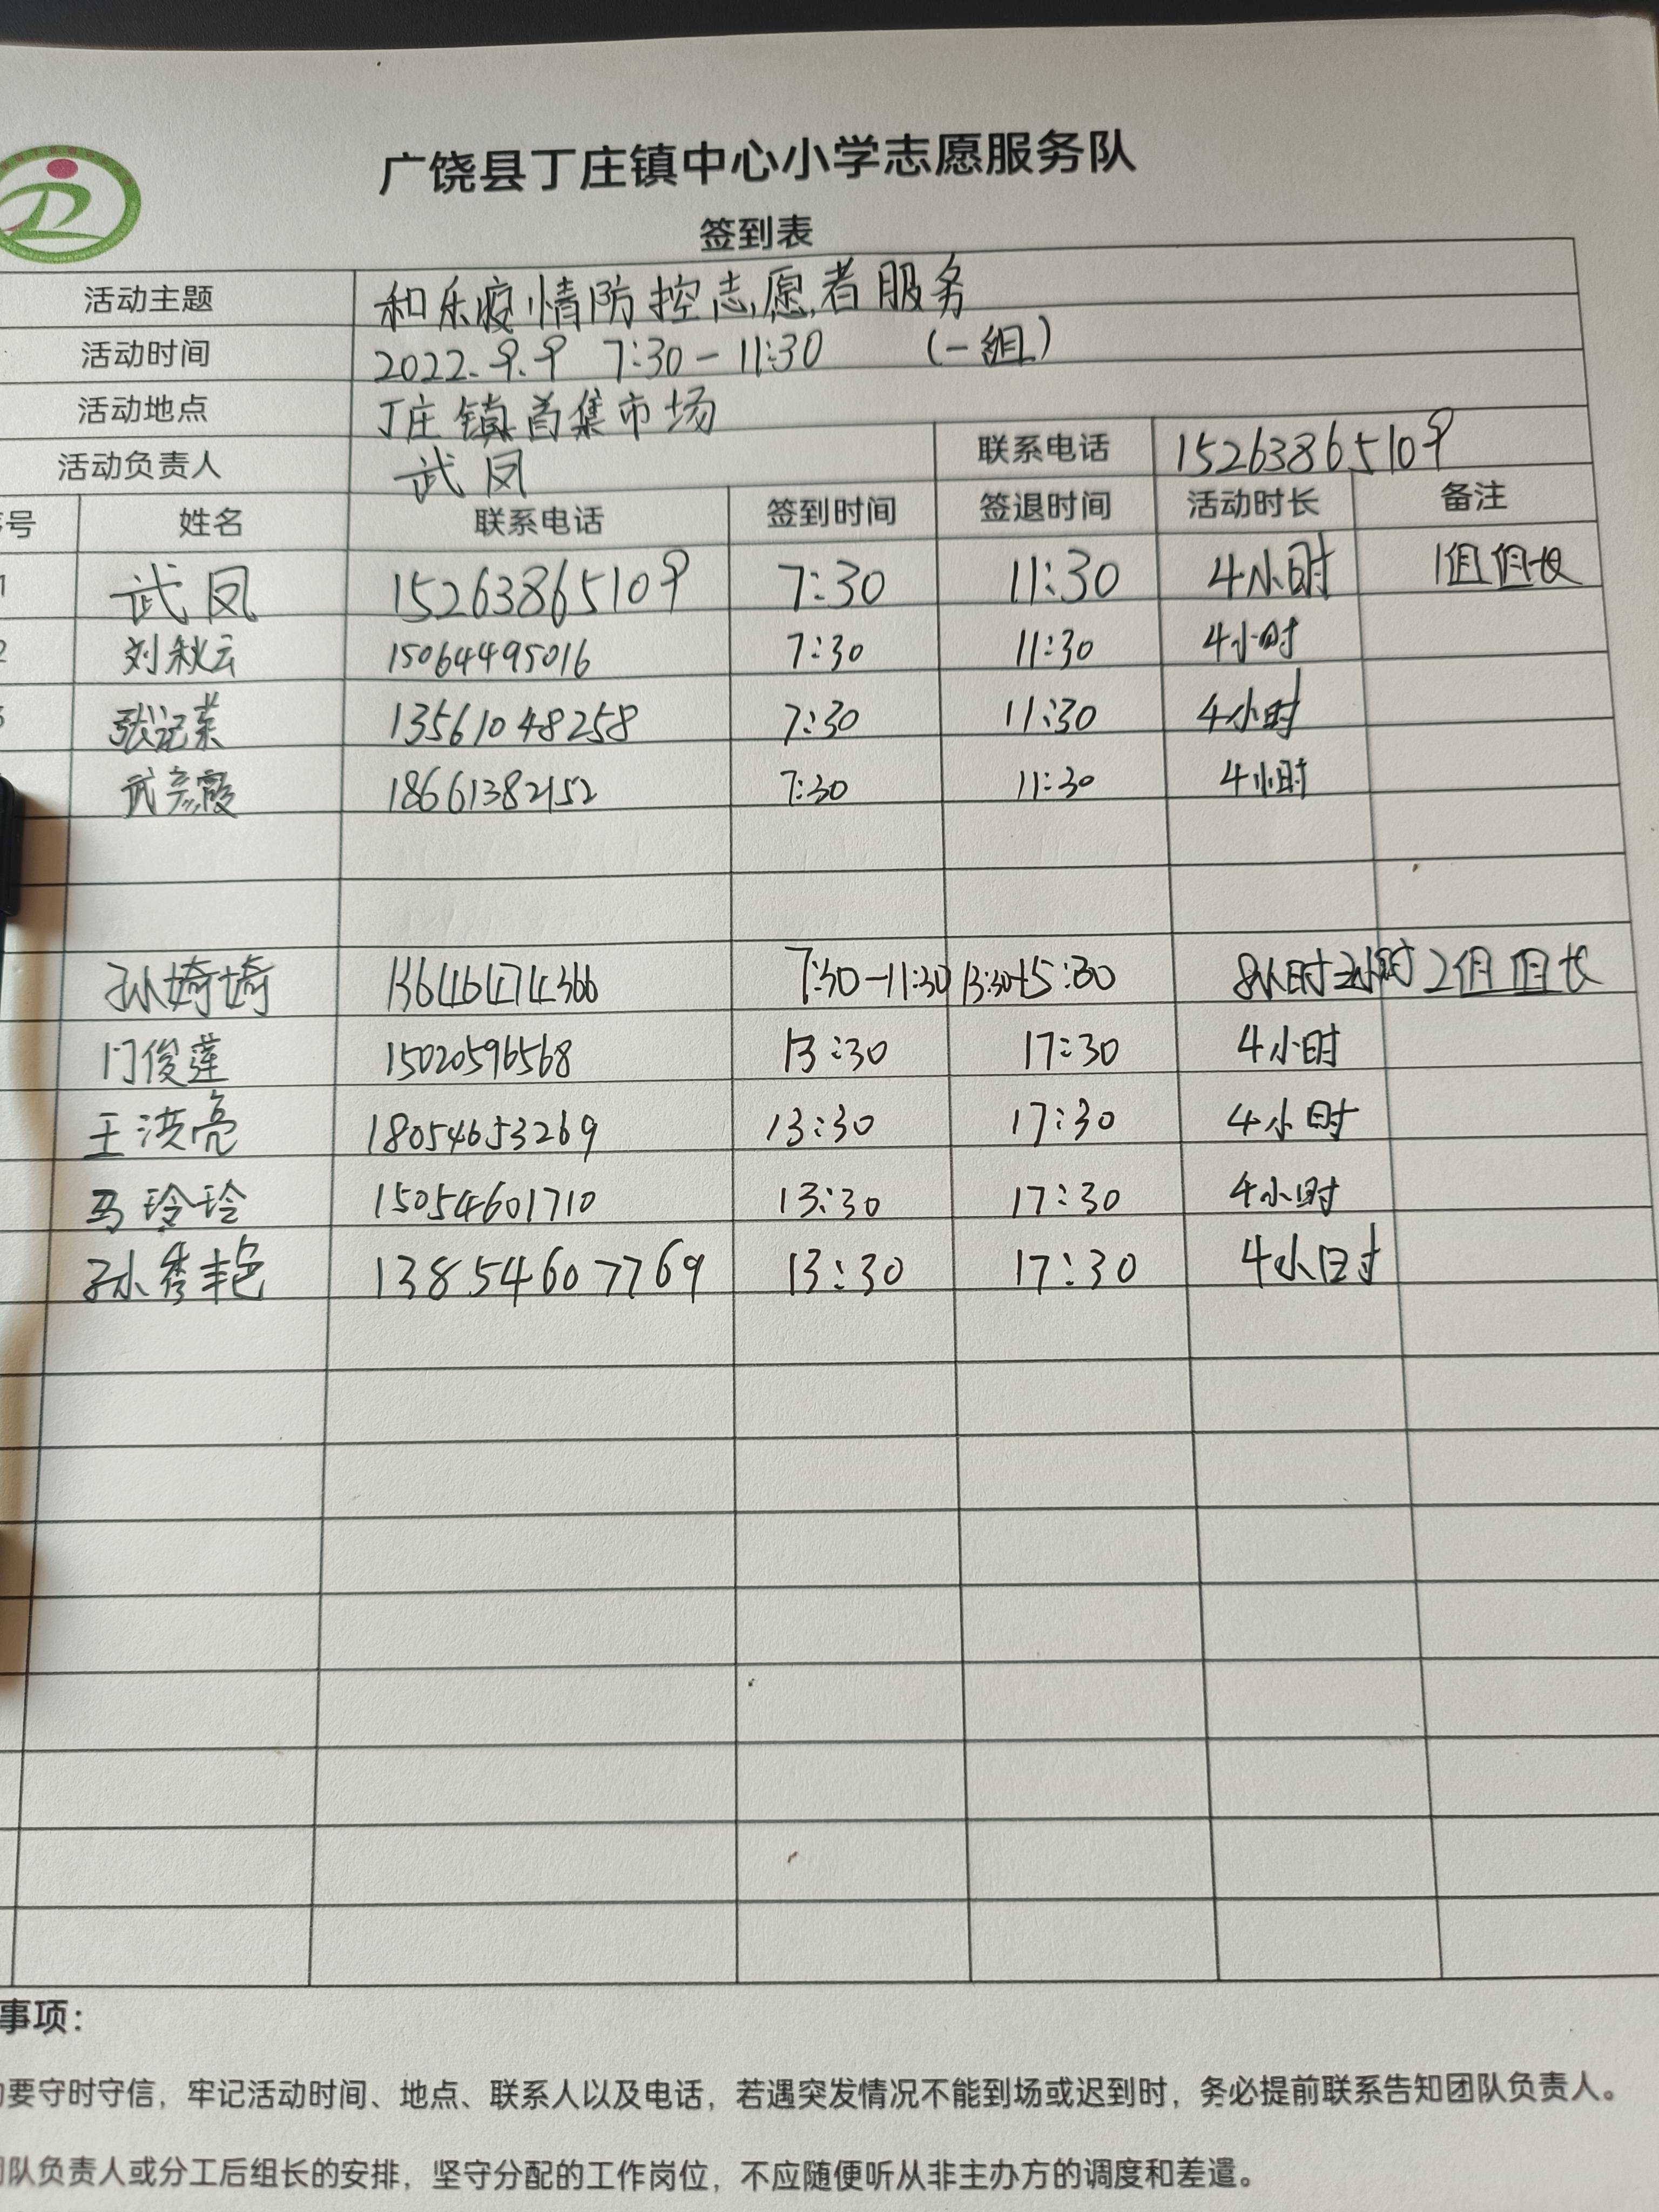 广饶县丁庄镇中心小学志愿服务队
签到表
活动主题 和乐疫情防控志愿者服务
活动时间 2022.9.9 7:30-11:30 (一组)
活动地点 丁庄镇首集市场
活动负责人 武凤 联系电话 15263865109
号 姓名 联系电话 签到时间 签退时间 活动时长 备注
1 武凤 15263865109 7:30 11:30 4小时 1组组长
2 刘秋云 15064495016 7:30 11:30 4小时
张记荣 13561048258 7:30 11:30 4小时
武彦霞 18661382152 7:30 11:30 4小时
孙婍婍 13646474366 7:30-11:30 13:30-15:30 8小时 2组组长
门俊莲 15020596568 13:30 17:30 4小时
王洪亮 18054653269 13:30 17:30 4小时
马玲玲 15054601710 13:30 17:30 4小时
孙秀艳 13854607769 13:30 17:30 4小时
事项：
要守时守信，牢记活动时间、地点、联系人以及电话，若遇突发情况不能到场或迟到时，务必提前联系告知团队负责人。
队负责人或分工后组长的安排，坚守分配的工作岗位，不应随便听从非主办方的调度和差遣。